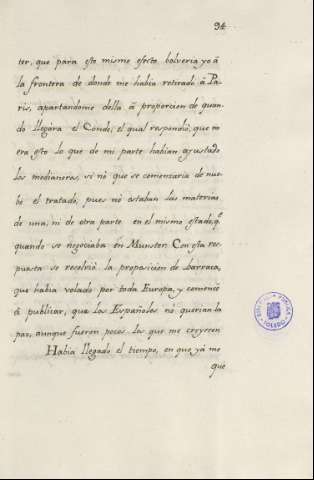 94
ter, que para esto mismo efecto bolveria yo â
la frontera de donde me habia retirado â Pa-
ris, apartandome della â proporcion de quan-
do llegàra el Conde; el qual respondiò, que no
era esto lo que de mi parte habian ajustado
los medianeros, si nò que se comenzaria de nue-
bo el tratado, pues nò estaban las materias
de una, ni de otra parte en el mismo estado, q.^e
quando se negociaba en Munster. Con esta res-
puesta se resolviò la proposicion de Barraca,
que habia volado por toda Europa, y comenzò
â publicar, que los Españoles no querian la
paz, aunque fueron pocos los que me creyeron
Habia llegado el tiempo, en que yà me
que
TOLEDO